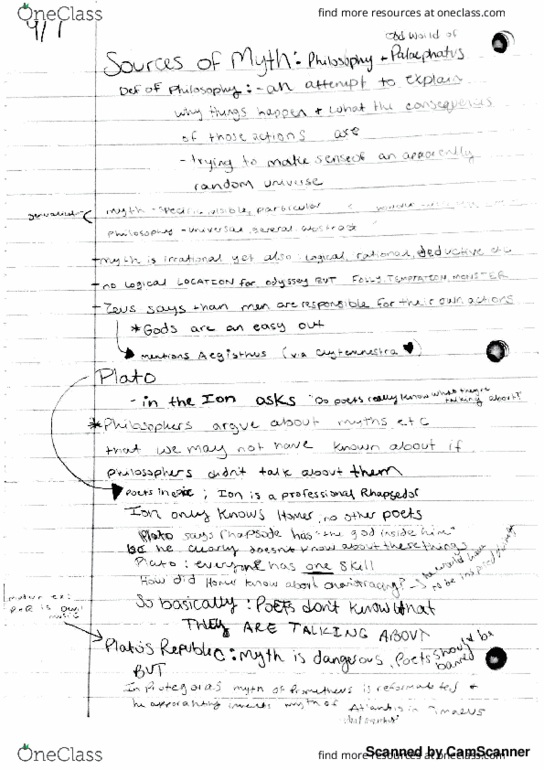 OneClass
find more resources at oneclass.com
9/7
Odd World of
Sources of Myth: Philosophy + Palaephatus
Def of Philosophy: - an attempt to explain
why things happen + what the consequences
of those actions are
- trying to make sense of an apparently
random universe
myth - specific, visible, particular
Philosophy - universal, general, abstract
- myth is irrational yet also logical, rational, deductive etc
- no logical LOCATION for odyssey BUT FOLLY, TEMPTATION, MONSTER
- Zeus says than men are responsible for their own actions
* Gods are an easy out
mentions Aegisthus (via Clytemnestra ♥)
Plato
- in the Ion asks "Do poets really know what they're talking about?"
* Philosophers argue about myths etc
that we may not have known about if
philosophers didn't talk about them
Poets in epic; Ion is a professional Rhapsedor
Ion only knows Homer, no other poets
Plato says rhapsode has "the god inside him"
bc he clearly doesn't know about these things
Plato: everyone has one skill
How did Homer know about charioteering? - he would have to be inspired
So basically: Poets don't know what
THEY ARE TALKING ABOUT
Plato's Republic: Myth is dangerous, Poets should be banned
BUT
In Protegoras myth of Prometheus is
myth of Atlantis in Timaeus
OneClass
Scanned by CamScanner
find more resources at oneclass.com